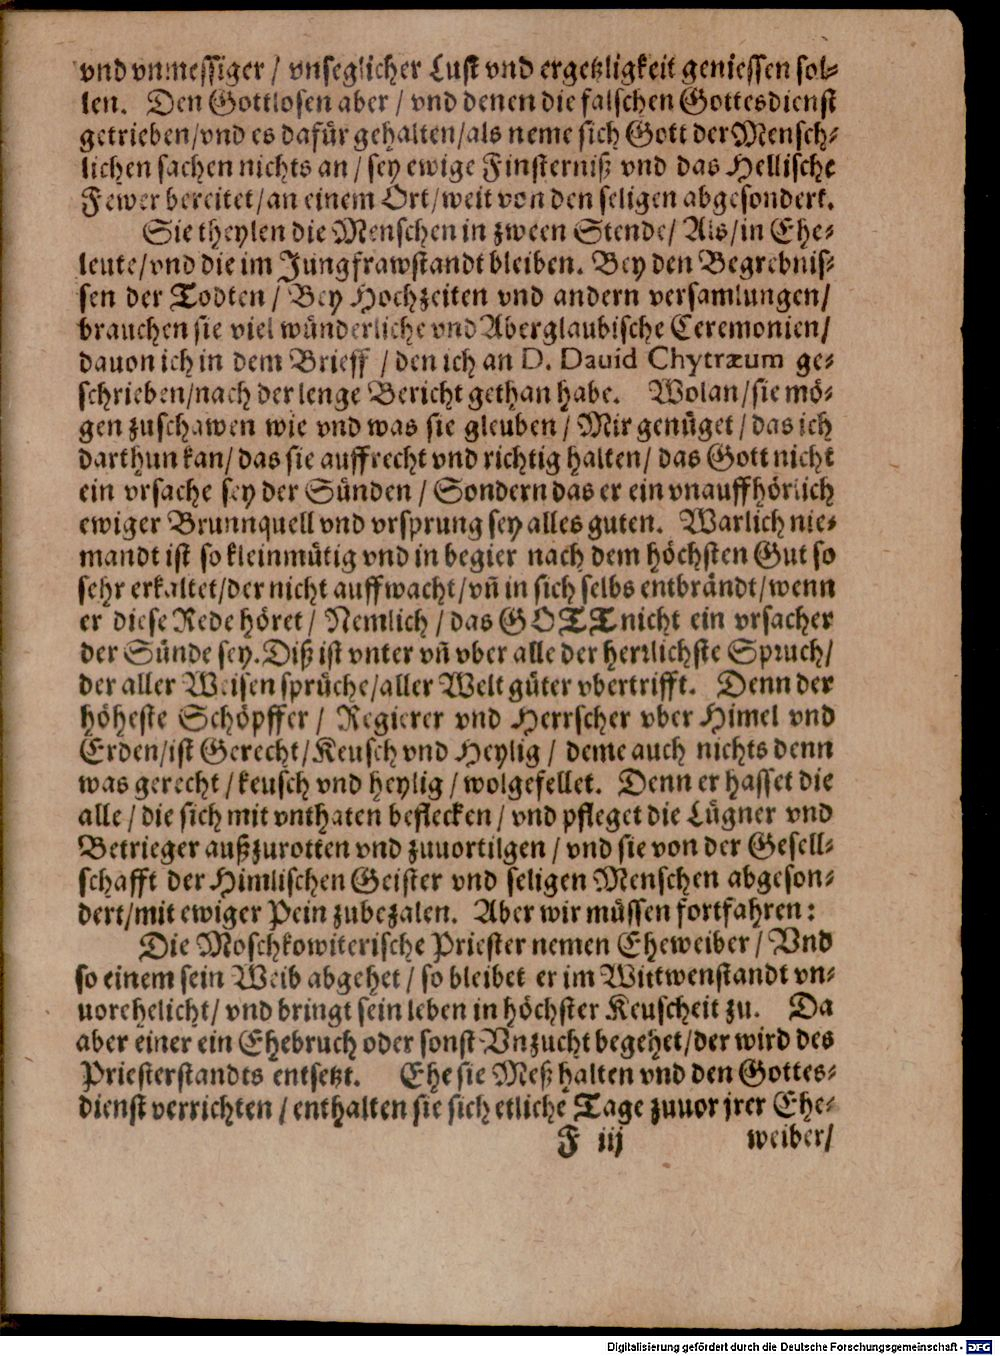 vnd vnmessiger / vnseglicher Lust vnd ergetzligkeit geniessen sol-
len. Den Gottlosen aber / vnd denen die falschen Gottesdienst
getrieben/vnd es dafür gehalten/als neme sich Gott der Mensch-
lichen sachen nichts an / sey ewige Finsterniß vnd das Hellische
Fewer bereitet/an einem Ort/weit von den seligen abgesondert.
Sie theylen die Menschen in zween Stende/ Als/in Ehe-
leute/vnd die im Jungfrawstandt bleiben. Bey den Begrebnis-
sen der Todten / Bey Hochzeiten vnd andern versamlungen/
brauchen sie viel wünderliche vnd Aberglaubische Ceremonien/
dauon ich in dem Brieff / den ich an D. Dauid Chytræum ge-
schrieben/nach der lenge Bericht gethan habe. Wolan/sie mö-
gen zuschawen wie vnd was sie gleuben / Mir genüget / das ich
darthun kan/ das sie auffrecht vnd richtig halten/ das Gott nicht
ein vrsache sey der Sünden / Sondern das er ein vnauffhörlich
ewiger Brunnquell vnd vrsprung sey alles guten. Warlich nie-
mandt ist so kleinmütig vnd in begier nach dem höchsten Gut so
sehr erkaltet/der nicht auffwacht/vñ in sich selbs entbrändt/wenn
er diese Rede höret / Nemlich / das GOTT nicht ein vrsacher
der Sünde sey. Diß ist vnter vñ vber alle der herrlichste Spruch/
der aller Weisen sprüche/aller Welt güter vbertrifft. Denn der
höheste Schöpffer / Regierer vnd Herrscher vber Himel vnd
Erden/ist Gerecht/Keusch vnd Heylig / deme auch nichts denn
was gerecht / keusch vnd heylig / wolgefellet. Denn er hasset die
alle / die sich mit vnthaten beflecken / vnd pfleget die Lügner vnd
Betrieger außzurotten vnd zuuortilgen / vnd sie von der Gesell-
schafft der Himlischen Geister vnd seligen Menschen abgeson-
dert/mit ewiger Pein zubezalen. Aber wir müssen fortfahren:
Die Moschkowiterische Priester nemen Eheweiber / Vnd
so einem sein Weib abgehet / so bleibet er im Wittwenstandt vn-
uorehelicht/ vnd bringt sein leben in höchster Keuscheit zu. Da
aber einer ein Ehebruch oder sonst Vnzucht begehet/der wird des
Priesterstandts entsetzt. Ehe sie Meß halten vnd den Gottes-
dienst verrichten / enthalten sie sich etliche Tage zuuor jrer Ehe-
F iij weiber/
Digitalisierung gefördert durch die Deutsche Forschungsgemeinschaft - DFG